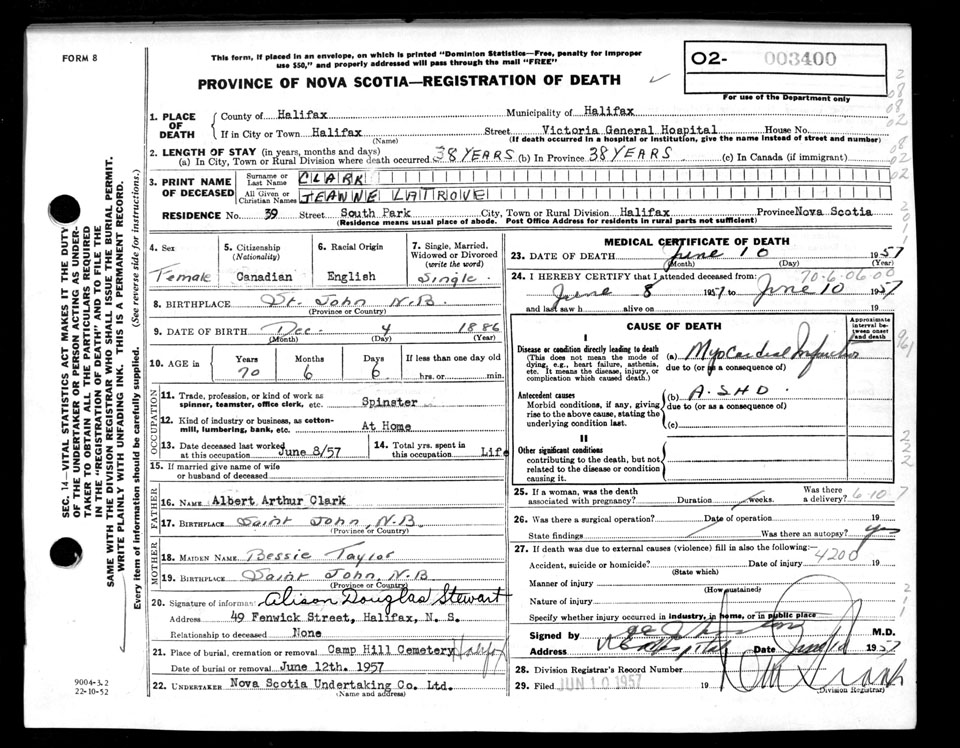 FORM 8
This form, if placed in an envelope, on which is printed "Dominion Statistics—Free, penalty for improper
use $50," and properly addressed will pass through the mail "FREE"
PROVINCE OF NOVA SCOTIA—REGISTRATION OF DEATH
O2- 003400
For use of the Department only
1. PLACE OF DEATH
County of Halifax Municipality of Halifax
If in City or Town Halifax Street Victoria General Hospital House No.
(Name) (If death occurred in a hospital or institution, give the name instead of street and number)
2. LENGTH OF STAY (in years, months and days)
(a) In City, Town or Rural Division where death occurred 38 YEARS (b) In Province 38 YEARS (c) In Canada (if immigrant)
3. PRINT NAME OF DECEASED
Surname or Last Name CLARK
All Given or Christian Names JEANNE LATROVE
RESIDENCE No. 39 Street South Park City, Town or Rural Division Halifax Province Nova Scotia
(Residence means usual place of abode. Post Office Address for residents in rural parts not sufficient)
4. Sex
Female
5. Citizenship
(Nationality)
Canadian
6. Racial Origin
English
7. Single, Married, Widowed or Divorced
(write the word)
Single
8. BIRTHPLACE St. John N.B.
(Province or Country)
9. DATE OF BIRTH Dec. 4 1886
(Month) (Day) (Year)
10. AGE in
Years Months Days If less than one day old
70 6 6 hrs. or min.
OCCUPATION
11. Trade, profession, or kind of work as
spinner, teamster, office clerk, etc. Spinster
12. Kind of industry or business, as cotton-
mill, lumbering, bank, etc. At Home
13. Date deceased last worked
at this occupation June 8/57
14. Total yrs. spent in
this occupation Life
15. If married give name of wife
or husband of deceased
FATHER
16. NAME Albert Arthur Clark
17. BIRTHPLACE Saint John, N.B.
(Province or Country)
MOTHER
18. MAIDEN NAME Bessie Taylor
19. BIRTHPLACE Saint John, N.B.
(Province or Country)
20. Signature of informant Alison Douglas Stewart
Address 49 Fenwick Street, Halifax, N. S.
Relationship to deceased None
21. Place of burial, cremation or removal Camp Hill Cemetery Halifax
Date of burial or removal June 12th. 1957
22. UNDERTAKER Nova Scotia Undertaking Co. Ltd.
(Name and address)
MEDICAL CERTIFICATE OF DEATH
23. DATE OF DEATH June 10 1957
(Month) (Day) (Year)
24. I HEREBY CERTIFY that I attended deceased from: 70-6-06-00
June 8 1957 to June 10 1957
and last saw h alive on 19
CAUSE OF DEATH
Approximate interval between onset and death
I
Disease or condition directly leading to death
(This does not mean the mode of
dying, e.g., heart failure, asthenia,
etc. It means the disease, injury, or
complication which caused death.)
(a) Myocardial Infarction
due to (or as a consequence of)
Antecedent causes
Morbid conditions, if any, giving
rise to the above cause, stating the
underlying condition last.
(b) A.S.H.D.
due to (or as a consequence of)
(c)
II
Other significant conditions
contributing to the death, but not
related to the disease or condition
causing it.
25. If a woman, was the death
associated with pregnancy? Duration weeks. Was there
a delivery? 6-10-7
26. Was there a surgical operation? Date of operation 19
State findings Was there an autopsy? yes
27. If death was due to external causes (violence) fill in also the following: 4200
Accident, suicide or homicide? Date of injury 19
(State which)
Manner of injury
(How sustained)
Nature of injury
Specify whether injury occurred in industry, in home, or in public place
Signed by M.D.
Address Date June 10 1957
28. Division Registrar's Record Number
29. Filed JUN 10 1957 19
(Division Registrar)
SEC. 14—VITAL STATISTICS ACT MAKES IT THE DUTY
OF THE UNDERTAKER OR PERSON ACTING AS UNDER-
TAKER TO OBTAIN ALL THE PARTICULARS REQUIRED
IN THE "REGISTRATION OF DEATH" AND TO FILE THE
SAME WITH THE DIVISION REGISTRAR WHO SHALL ISSUE THE BURIAL PERMIT.
WRITE PLAINLY WITH UNFADING INK. THIS IS A PERMANENT RECORD.
Every item of information should be carefully supplied. (See reverse side for instructions.)
9004-3.2
22-10-52